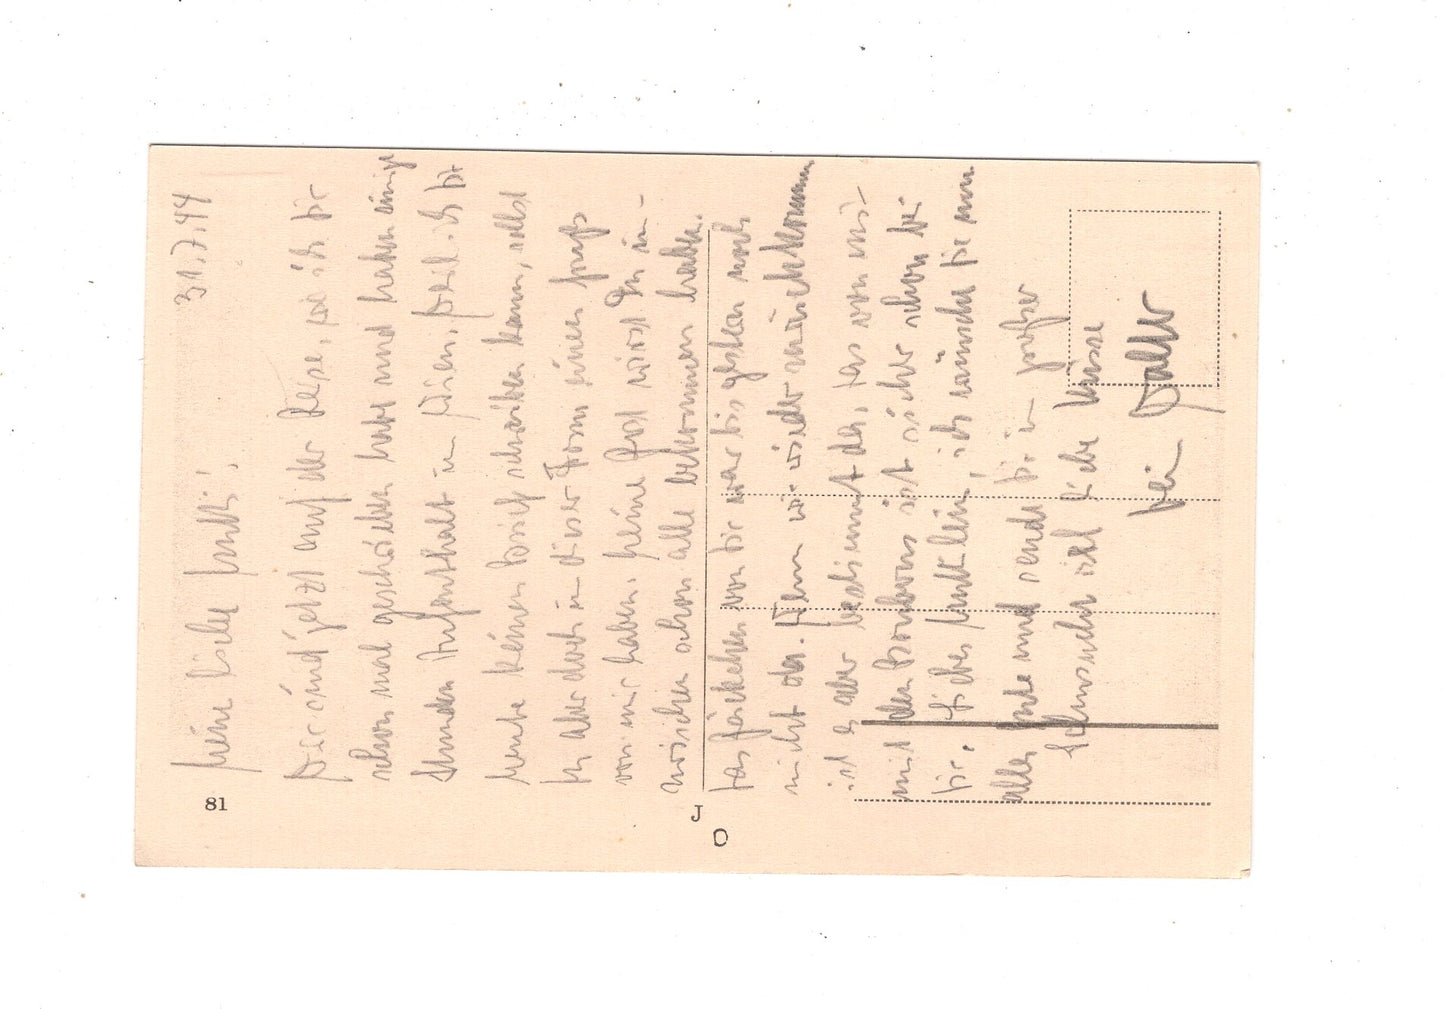 31.7.44
Meine liebe Mutti!
Wir sind jetzt auf der Reise, wie ich Dir
schon mal geschrieben habe und haben einige
Stunden Aufenthalt in Wien, weil ich Dir
heute keinen Brief schreiben kann, sollst
Du aber doch in dieser Form einen Gruß
von mir haben. Meine Post wirst Du in-
zwischen schon alle bekommen haben.
Das Päckchen von Dir war bis gestern noch
nicht da. Wenn wir wieder zurückkommen
ist es aber bestimmt da, das von mir
mit den Bonbons ist sicher schon bei
Dir. Liebes Muttilein, ich wünsche Dir nun
alles Gute und sende Dir in großer
Sehnsucht viel liebe Küsse
Dein Walter
81
J
D